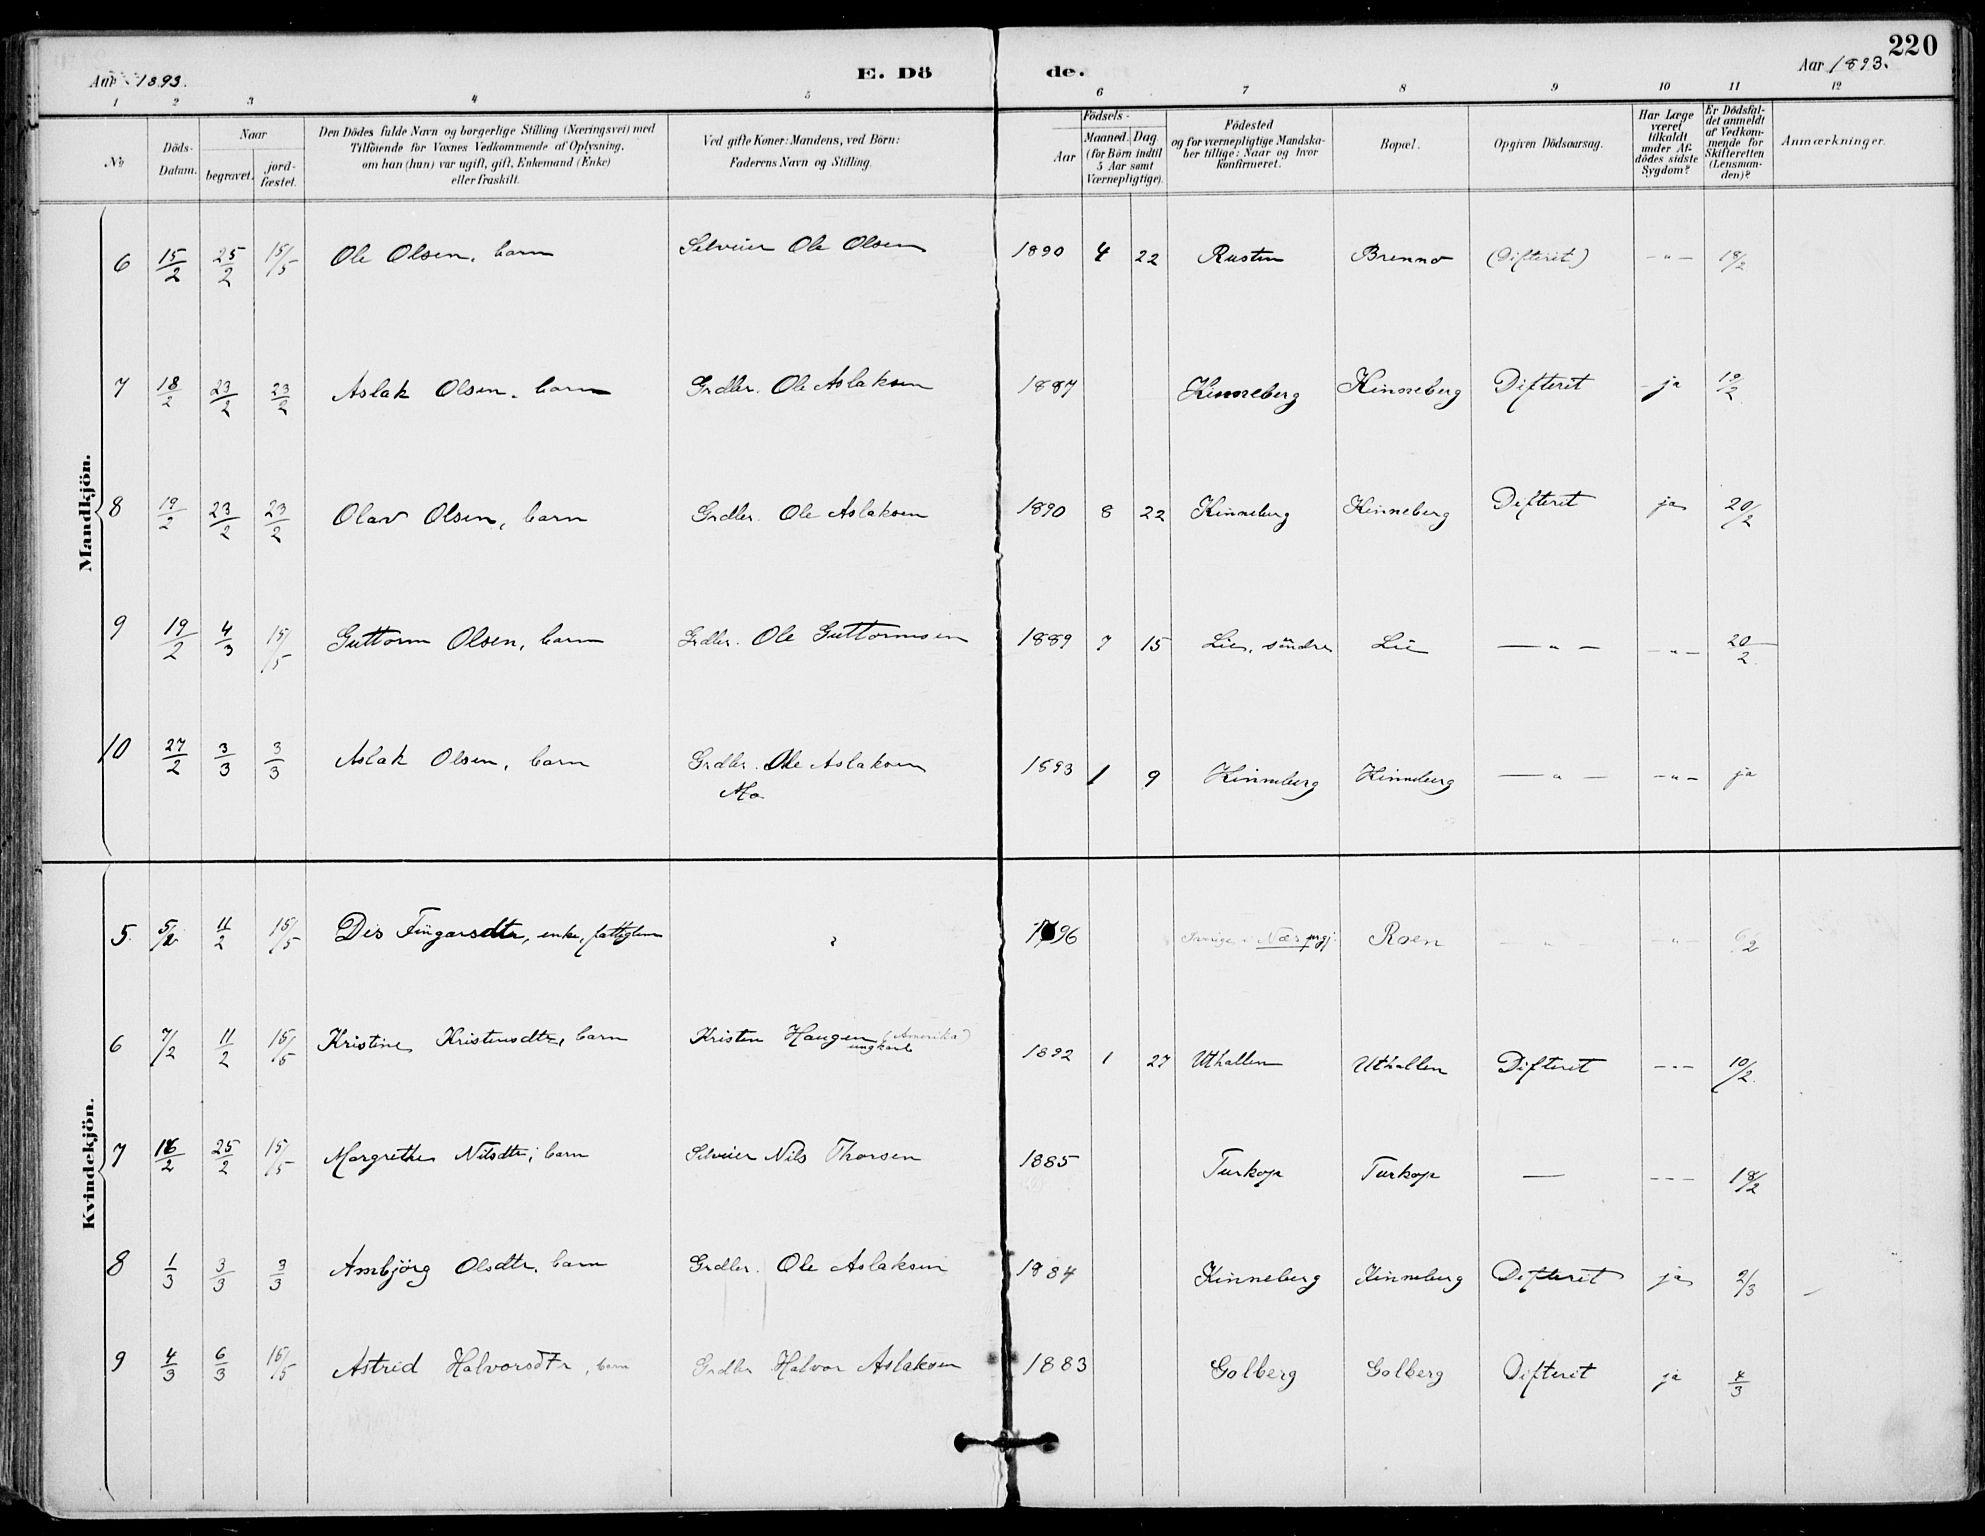 220
Aar 1893. E. Dö de. Aar 1893.
1 2 3 4 5 6 7 8 9 10 11 12
No
Döds-Datum.
Naar
begravet.
jord-fæstet.
Den Dödes fulde Navn og borgerlige Stilling (Næringsvei) med
Tilföiende for Voxnes Vedkommende af Oplysning,
om han (hun) var ugift, gift, Enkemand (Enke)
eller fraskilt.
Ved gifte Koner: Mandens, ved Börn:
Faderens Navn og Stilling.
Födsels-
Aar
Maaned. Dag
(for Börn indtil
5 Aar samt
Værnepligtige).
Födested
og for værnepligtige Mandska-
ber tillige: Naar og hvor
konfirmeret.
Bopæl.
Opgiven Dödsaarsag.
Har Læge
været
tilkaldt
under Af-
dödes sidste
Sygdom?
Er Dödsfal-
det anmeldt
af Vedkom-
mende for
Skifteretten
(Lensman-
den)?
Anmærkninger.
Mandkjön.
6 15/2 25/2 15/5 Ole Olsen, barn Selveier Ole Olsen 1890 4 22 Rusten Brenno (Difterit) -"- 18/2
7 18/2 23/2 23/2 Aslak Olsen, barn Grdbr. Ole Aslaksen 1887 Kinneberg Kinneberg Difterit ja 19/2
8 19/2 23/2 23/2 Olav Olsen, barn Grdbr. Ole Aslaksen 1890 8 22 Kinneberg Kinneberg Difterit ja 20/2
9 19/2 4/3 15/5 Guttorm Olsen, barn Grdbr. Ole Guttormsen 1889 7 15 Lie, söndre Lie —"— -"- 20/2
10 27/2 3/3 3/3 Aslak Olsen, barn Grdbr. Ole Aslaksen 1893 1 9 Kinneberg Kinneberg —"— -"- ja
Mo
Kvindekjön.
5. 5/2 11/2 15/5 Dis Fingarsdtr, enke, fattiglem 1796 Næs prgj. Roen —"— -"- 6/2
6 7/2 11/2 15/5 Kristine Kristensdtr, barn Kristen Haugen (Amerika) 1892 1 27 Uthallen Uthallen Difterit -"- 10/2
ungkarl
7 16/2 25/2 15/5 Margrethe Nilsdtr, barn Selveier Nils Thorsen 1885 Turkop Turkop — --- 18/2
8 1/3 3/3 3/3 Ambjörg Olsdtr, barn Grdbr. Ole Aslaksen 1884 Kinneberg Kinneberg Difterit ja 2/3
9 4/3 6/3 15/5 Astrid Halvorsdtr, barn Grdbr Halvor Aslaksen 1883 Golberg Golberg Difterit ja 4/3